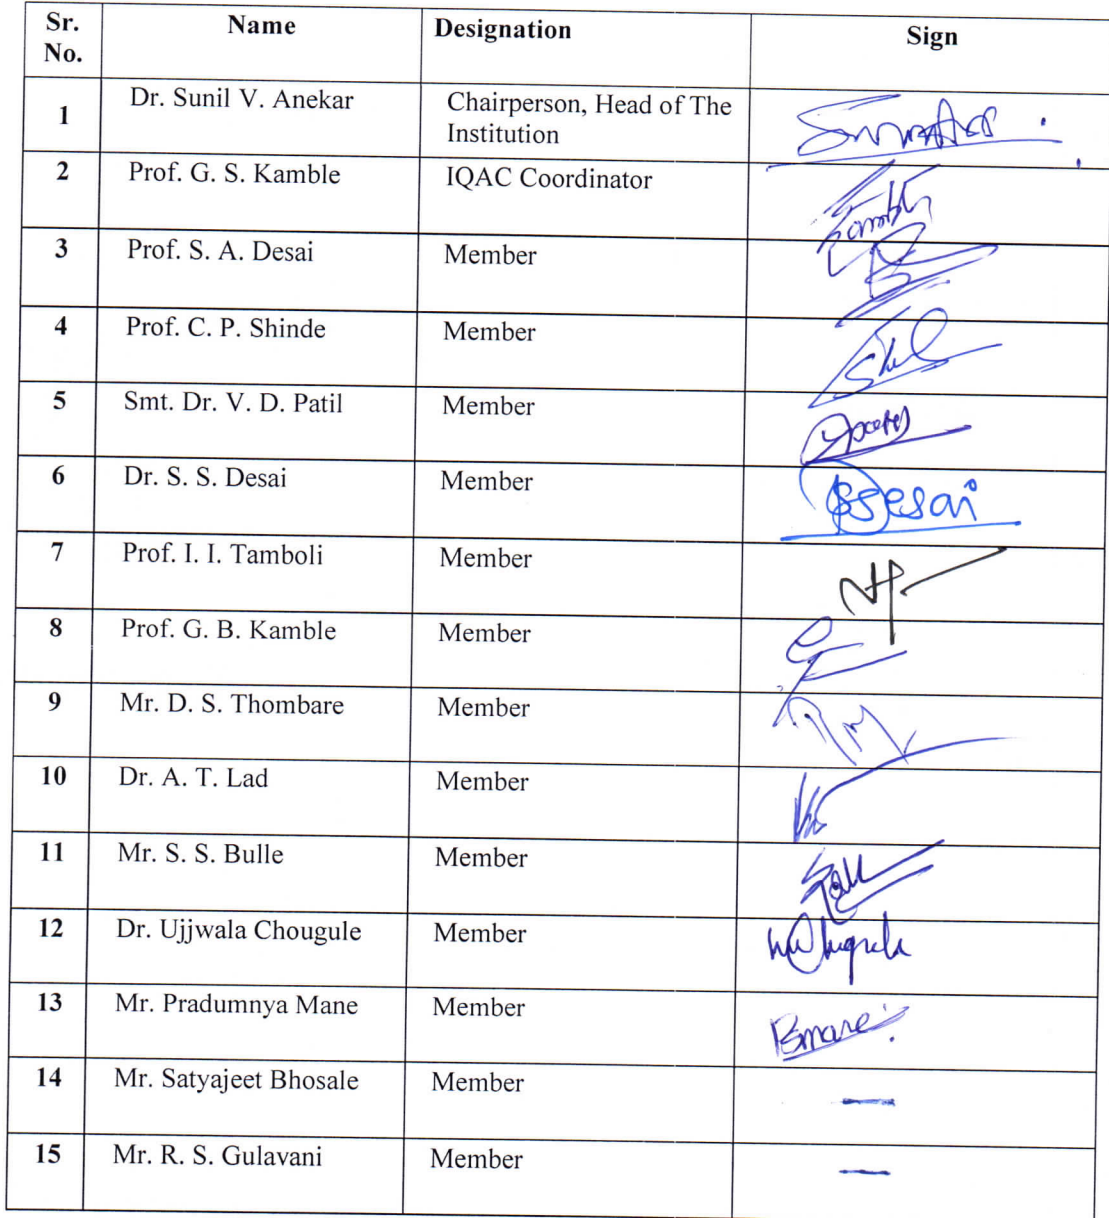 Sr. No. Name Designation Sign
1 Dr. Sunil V. Anekar Chairperson, Head of The Institution
2 Prof. G. S. Kamble IQAC Coordinator
3 Prof. S. A. Desai Member
4 Prof. C. P. Shinde Member
5 Smt. Dr. V. D. Patil Member
6 Dr. S. S. Desai Member
7 Prof. I. I. Tamboli Member
8 Prof. G. B. Kamble Member
9 Mr. D. S. Thombare Member
10 Dr. A. T. Lad Member
11 Mr. S. S. Bulle Member
12 Dr. Ujjwala Chougule Member
13 Mr. Pradumnya Mane Member
14 Mr. Satyajeet Bhosale Member —
15 Mr. R. S. Gulavani Member —